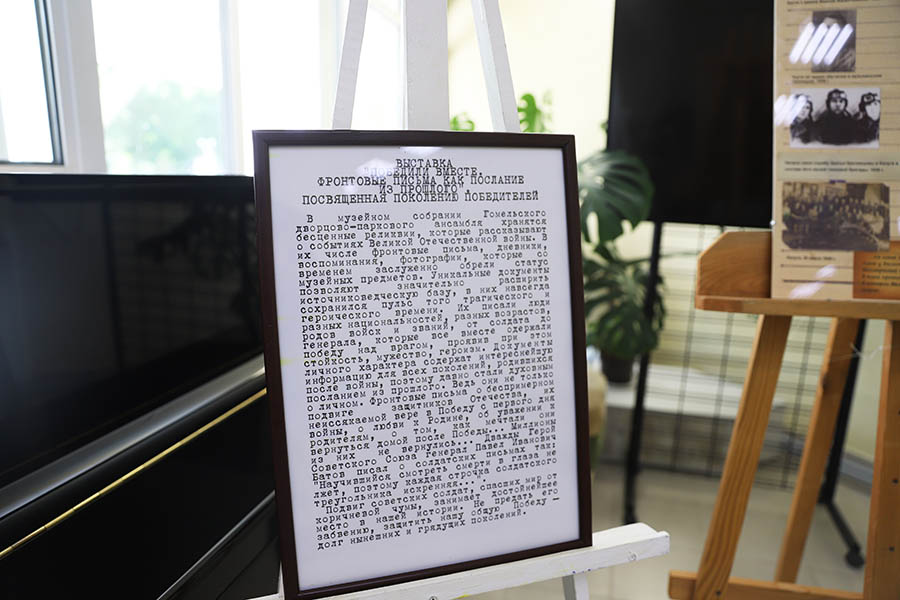 ВЫСТАВКА
"ПОБЕДИЛИ ВМЕСТЕ.
ФРОНТОВЫЕ ПИСЬМА КАК ПОСЛАНИЕ
ИЗ ПРОШЛОГО",
ПОСВЯЩЕННАЯ ПОКОЛЕНИЮ ПОБЕДИТЕЛЕЙ
В музейном собрании Гомельского
дворцово-паркового ансамбля хранятся
бесценные реликвии, которые рассказывают
о событиях Великой Отечественной войны. В
их числе фронтовые письма, дневники,
воспоминания, фотографии, которые со
временем заслуженно обрели статус
музейных предметов. Уникальные документы
позволяют значительно расширить
источниковедческую базу, в них навсегда
сохранился пульс того трагического и
героического времени. Их писали люди
разных национальностей, разных возрастов,
родов войск и званий, от солдата до
генерала, которые все вместе одержали
победу над врагом, проявив при этом
стойкость, мужество, героизм. Документы
личного характера содержат интереснейшую
информацию для всех поколений, родившихся
после войны, поэтому давно стали духовным
посланием из прошлого. Ведь они не только
о личном. Фронтовые письма о беспримерном
подвиге защитников Отечества, их
неиссякаемой вере в Победу с первого дня
войны, о любви к Родине, об уважении к
родителям, о том, как мечтали они
вернуться домой после Победы... Миллионы
из них не вернулись... Дважды Герой
Советского Союза генерал Павел Иванович
Батов писал о солдатских письмах так:
"Научившийся смотреть смерти в глаза не
лжет, поэтому каждая строчка солдатского
треугольника искренняя..."
Подвиг советских солдат, спасших мир от
коричневой чумы, занимает достойнейшее
место в нашей истории. Не предать его
забвению, защитить нашу общую Победу –
долг нынешних и грядущих поколений.